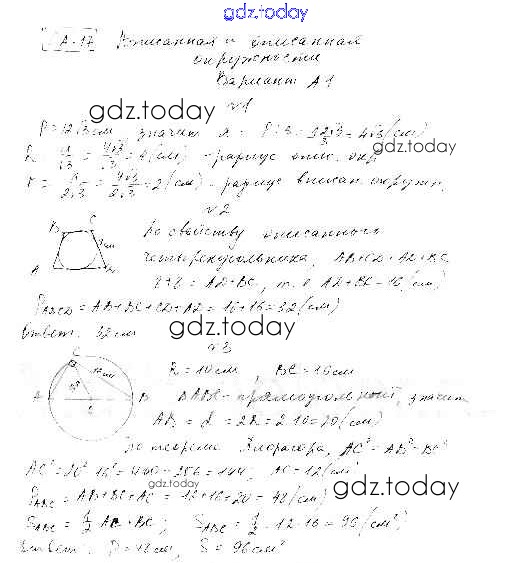 gdz.today
А-17 Вписанная и описанная
окружности
Вариант А1
№1
P = 12√3 см, значит a = P : 3 = 12√3/3 = 4√3 (см)
gdz.today
R = a/√3 = 4√3/√3 = 4 (см) - радиус опис. окр.
gdz.today
r = a/2√3 = 4√3/2√3 = 2 (см) - радиус вписан. окружн.
№2
B C
По свойству описанного
четырехугольника, AB+CD = AD+BC
A
= AD+BC, т. е AD+BC = 16 (см)
gdz.today
P ABCD = AB+BC+CD+AD = 16+16 = 32 (см)
Ответ: 32 см
gdz.today
№3
C
R = 10 см, BC = 16 см
A B
ΔABC - прямоугольный, значит
AB = d = 2R = 2·10 = 20 (см)
По теореме Пифагора, AC² = AB² - BC²
AC² = 20² - 16² = 400 - 256 = 144, AC = 12 (см)
gdz.today
P ABC = AB+BC+AC = 12+16+20 = 48 (см)
gdz.today
S ABC = 1/2 AC · BC; S ABC = 1/2 · 12 · 16 = 96 (см²)
Ответ: P = 48 см, S = 96 см²